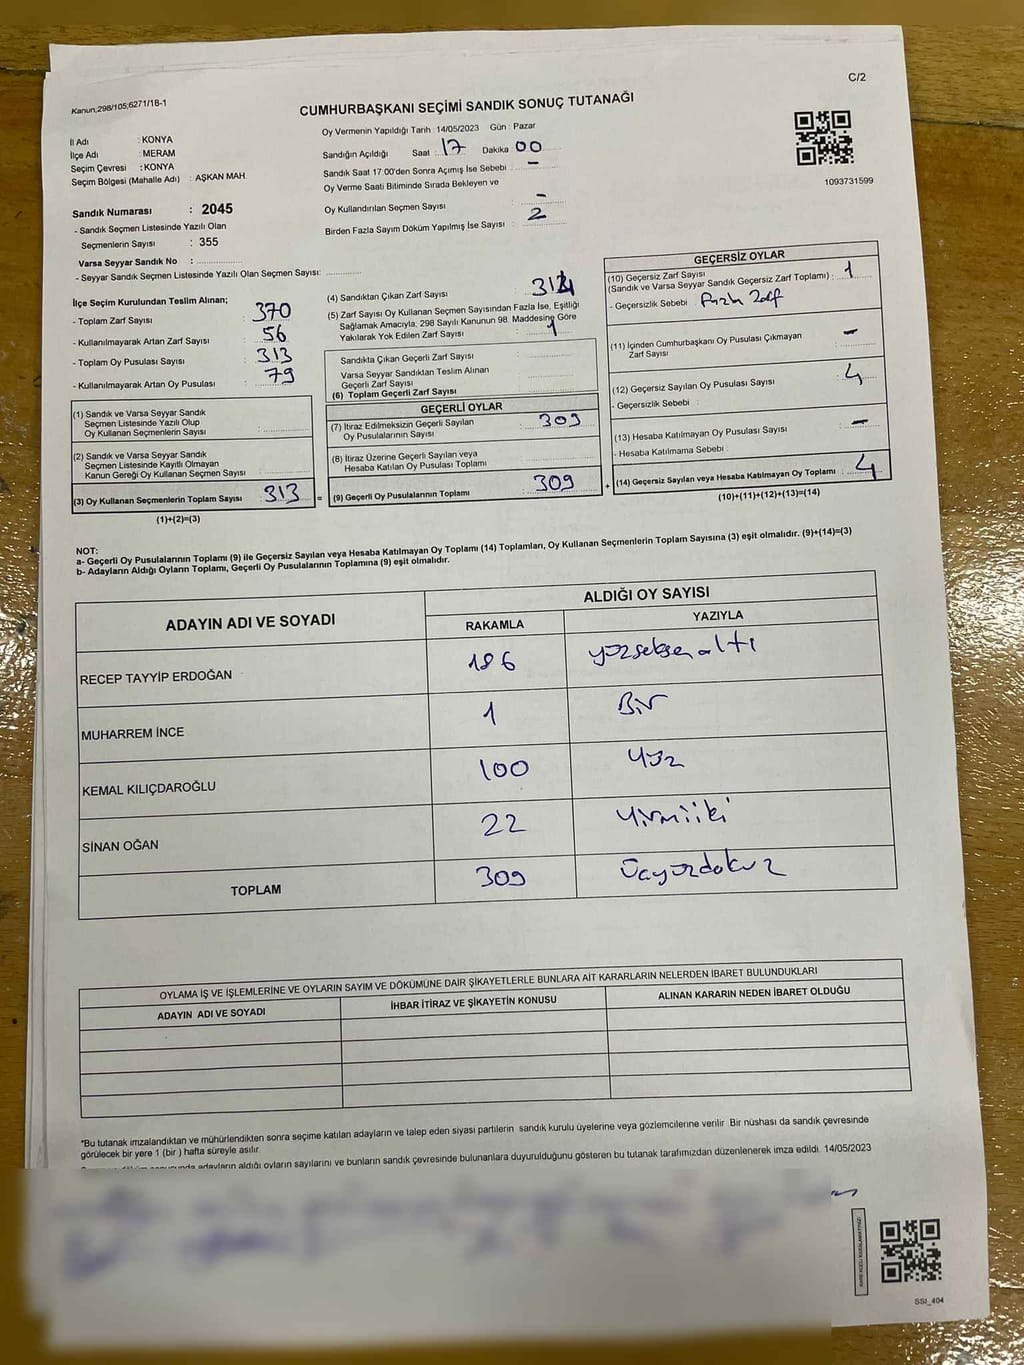 C/2
Kanun;298/105;6271/18-1
CUMHURBAŞKANI SEÇİMİ SANDIK SONUÇ TUTANAĞI
İl Adı : KONYA
İlçe Adı : MERAM
Seçim Çevresi : KONYA
Seçim Bölgesi (Mahalle Adı) : AŞKAN MAH.
Sandık Numarası : 2045
- Sandık Seçmen Listesinde Yazılı Olan
Seçmenlerin Sayısı : 355
Varsa Seyyar Sandık No :
- Seyyar Sandık Seçmen Listesinde Yazılı Olan Seçmen Sayısı:
Oy Vermenin Yapıldığı Tarih : 14/05/2023 Gün : Pazar
Sandığın Açıldığı Saat : 17 Dakika 00
Sandık Saat 17:00'den Sonra Açımış İse Sebebi : -
Oy Verme Saati Bitiminde Sırada Bekleyen ve
Oy Kullandırılan Seçmen Sayısı : -
Birden Fazla Sayım Döküm Yapılmış İse Sayısı : 2
1093731599
İlçe Seçim Kurulundan Teslim Alınan;
- Toplam Zarf Sayısı : 370
- Kullanılmayarak Artan Zarf Sayısı : 56
- Toplam Oy Pusulası : 313
- Kullanılmayarak Artan Oy Pusulası : 79
(1) Sandık ve Varsa Seyyar Sandık
Seçmen Listesinde Yazılı Olup
Oy Kullanan Seçmenlerin Sayısı :
(2) Sandık ve Varsa Seyyar Sandık
Seçmen Listesinde Kayıtlı Olmayan
Kanun Gereği Oy Kullanan Seçmen Sayısı :
(3) Oy Kullanan Seçmenlerin Toplam Sayısı : 313 =
(1)+(2)=(3)
(4) Sandıktan Çıkan Zarf Sayısı : 314
(5) Zarf Sayısı Oy Kullanan Seçmen Sayısından Fazla İse, Eşitliği
Sağlamak Amacıyla, 298 Sayılı Kanunun 98. Maddesine Göre
Yakılarak Yok Edilen Zarf Sayısı : 1
Sandıkta Çıkan Geçerli Zarf Sayısı :
Varsa Seyyar Sandıktan Teslim Alınan
Geçerli Zarf Sayısı :
(6) Toplam Geçerli Zarf Sayısı :
GEÇERLİ OYLAR
(7) İtiraz Edilmeksizin Geçerli Sayılan
Oy Pusulalarının Sayısı : 309
(8) İtiraz Üzerine Geçerli Sayılan veya
Hesaba Katılan Oy Pusulası Toplamı :
(9) Geçerli Oy Pusulalarının Toplamı : 309 +
GEÇERSİZ OYLAR
(10) Geçersiz Zarf Sayısı
(Sandık ve Varsa Seyyar Sandık Geçersiz Zarf Toplamı) : 1
- Geçersizlik Sebebi : Fazla Zarf
(11) İçinden Cumhurbaşkanı Oy Pusulası Çıkmayan
Zarf Sayısı : -
(12) Geçersiz Sayılan Oy Pusulası Sayısı : 4
- Geçersizlik Sebebi :
(13) Hesaba Katılmayan Oy Pusulası Sayısı : -
- Hesaba Katılmama Sebebi :
(14) Geçersiz Sayılan veya Hesaba Katılmayan Oy Toplamı : 4
(10)+(11)+(12)+(13)=(14)
NOT:
a- Geçerli Oy Pusulalarının Toplamı (9) ile Geçersiz Sayılan veya Hesaba Katılmayan Oy Toplamı (14) Toplamları, Oy Kullanan Seçmenlerin Toplam Sayısına (3) eşit olmalıdır. (9)+(14)=(3)
b- Adayların Aldığı Oyların Toplamı, Geçerli Oy Pusulalarının Toplamına (9) eşit olmalıdır.
ADAYIN ADI VE SOYADI
ALDIĞI OY SAYISI
RAKAMLA YAZIYLA
RECEP TAYYİP ERDOĞAN 186 yüzseksenaltı
MUHARREM İNCE 1 Bir
KEMAL KILIÇDAROĞLU 100 Yüz
SİNAN OĞAN 22 Yirmiiki
TOPLAM 309 Üçyüzdokuz
OYLAMA İŞ VE İŞLEMLERİNE VE OYLARIN SAYIM VE DÖKÜMÜNE DAİR ŞİKAYETLERLE BUNLARA AİT KARARLARIN NELERDEN İBARET BULUNDUKLARI
ADAYIN ADI VE SOYADI İHBAR İTİRAZ VE ŞİKAYETİN KONUSU ALINAN KARARIN NEDEN İBARET OLDUĞU
*Bu tutanak imzalandıktan ve mühürlendikten sonra seçime katılan adayların ve talep eden siyasi partilerin sandık kurulu üyelerine veya gözlemcilerine verilir. Bir nüshası da sandık çevresinde
görülecek bir yere 1 (bir ) hafta süreyle asılır.
adayların aldığı oyların sayılarını ve bunların sandık çevresinde bulunanlara duyurulduğunu gösteren bu tutanak tarafımızdan düzenlenerek imza edildi. 14/05/2023
SSI_404